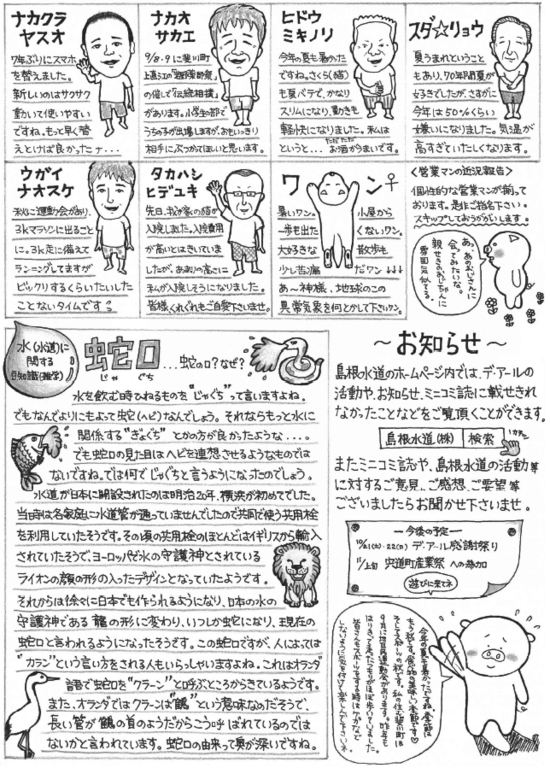 ナカクラ
ヤスオ
7年ぶりにスマホ
を替えました。
新しいのはサクサク
動いて使いやすい
ですね。もっと早く替
えとけば良かったァ…
ナカオ
サカエ
9/8・9に斐川町
の催しで「伝統相撲」
があります。小学生の部で
うちの子が出場しますが、おもいっきり
相手にぶつかてほしいと思います。
ヒドウ
ミキノリ
今年の夏も暑かった
ですね。さくら(猫)
も夏バテで、かなり
スリムになり、動きも
軽快になりました。私は
というと...
お酒がうまいです。
スダ☆リョウ
夏うまれということ
もあり、70年間夏が
好きでしたが、さすがに
今年は50%くらい
嫌いになりました。気温が
高すぎていたしくなります。
ウガイ
ナオスケ
秋に運動会があり、
3kマラソンに出ること
に。3k走に備えて
ランニングしてますが
ビックリするくらいたいした
ことないタイムです
タカハシ
ヒデユキ
先日、我が家の猫が
入院しました。入院費用
が高いとはきいていま
したが、あまりの高さに
私が入院しそうになりました。
皆様くれぐれもご自愛下さいませ。
ワン
暑いワン。小屋から
一歩も出たくないワン。
大好きな散歩も
少し苦痛だワン↓↓↓
あ〜神様、地球のこの
異常気象を何とかして下さいワン。
<営業マンの近況報告>
個性的な営業マンが揃って
おります。是非ご指名下さい。
スキップしておうかがいします。
あっ、あのおじさんに
会ってみたいな。
親せきのおじちゃんに
雰囲気似てる。
水(水道)に
関する
豆知識(雑学)
蛇口
じゃぐち
...蛇の口?なぜ?
水を飲む時ひねるものを"じゃぐち"って言いますよね。
でもなんでよりにもよって蛇(ヘビ)なんでしょう。それならもっと水に
関係する"ぎょぐち"とかの方が良かったような....。
でも蛇口の見た目はヘビを連想させるようなものでは
ないですね。では何でじゃぐちと言うようになったのでしょう。
水道が日本に開設されたのは明治20年、横浜が初めてでした。
当時は各家庭に水道管が通っていませんでしたので共同で使う共用栓
を利用していたそうです。その頃の共用栓のほとんどはイギリスから輸入
されていたそうで、ヨーロッパで水の守護神とされている
ライオンの顔の形の入ったデザインとなっていたようです。
それからは徐々に日本でも作られるようになり、日本の水の
守護神である龍の形に変わり、いつしか蛇になり、現在の
蛇口と言われるようになったそうです。この蛇口ですが、人によっては
"カラン"という言い方をされる人もいらっしゃいますよね。これはオランダ
語で蛇口を"クラーン"と呼ぶところからきているようです。
また、オランダではクラーンは"鶴"という意味なのだそうで、
長い管が鶴の首のようだからこう呼ばれているのでは
ないかと言われています。蛇口の由来って奥が深いですね。
〜お知らせ〜
島根水道のホームページ内では、デ・アールの
活動や、お知らせ、ミニコミ誌に載せきれ
なかったことなどをご覧頂くことができます。
島根水道(株) 検索
またミニコミ誌や、島根水道の活動等
に対するご意見、ご感想、ご要望等
ございましたらお聞かせ下さいませ。
―今後の予定―
10/21(土)・22(日) デ・アール感謝祭り
11/上旬 宍道町産業祭 への参加
遊びに来てネ